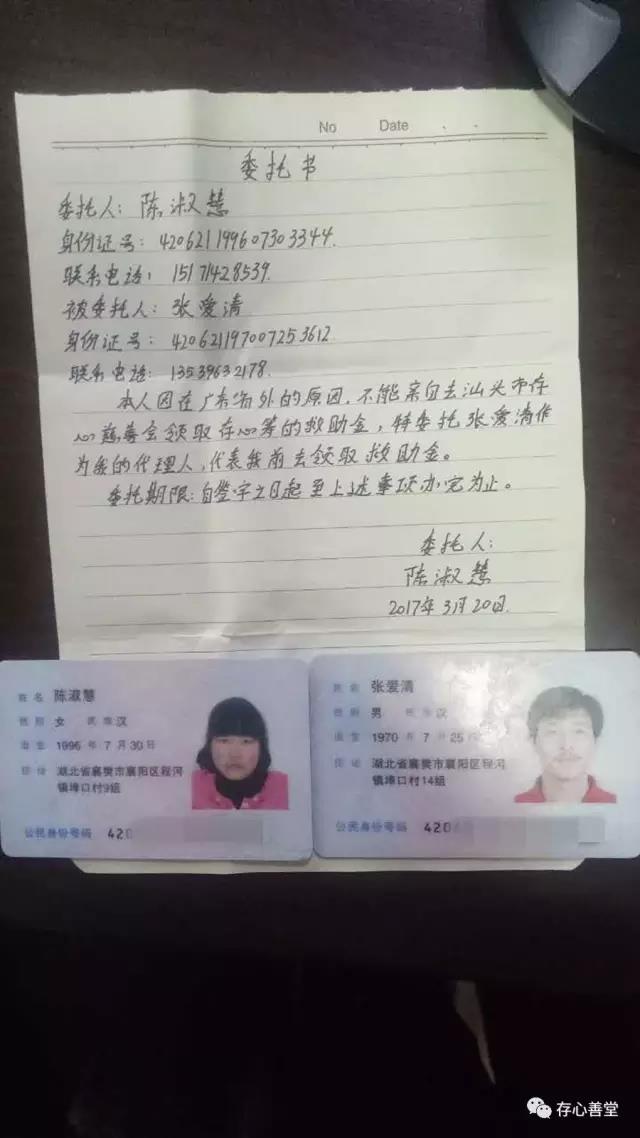 No Date
委托书
委托人：陈淑慧
身份证号：420621199607303344.
联系电话：15171428539.
被委托人：张爱清
身份证号：420621197007253612.
联系电话：13539632178.
本人因在广东省外的原因，不能亲自去汕头市存
心慈善会领取存心筹的救助金，特委托张爱清作
为我的代理人，代表我前去领取救助金。
委托期限：自签字之日起至上述事项办完为止。
委托人：
陈淑慧
2017年3月20日.
姓名 陈淑慧
性别 女 民族 汉
出生 1996 年 7 月 30 日
住址 湖北省襄樊市襄阳区程河
镇埠口村9组
公民身份号码 420
姓名 张爱清
性别 男 民族 汉
出生 1970 年 7 月 25 日
住址 湖北省襄樊市襄阳区程河
镇埠口村14组
公民身份号码 420
存心善堂